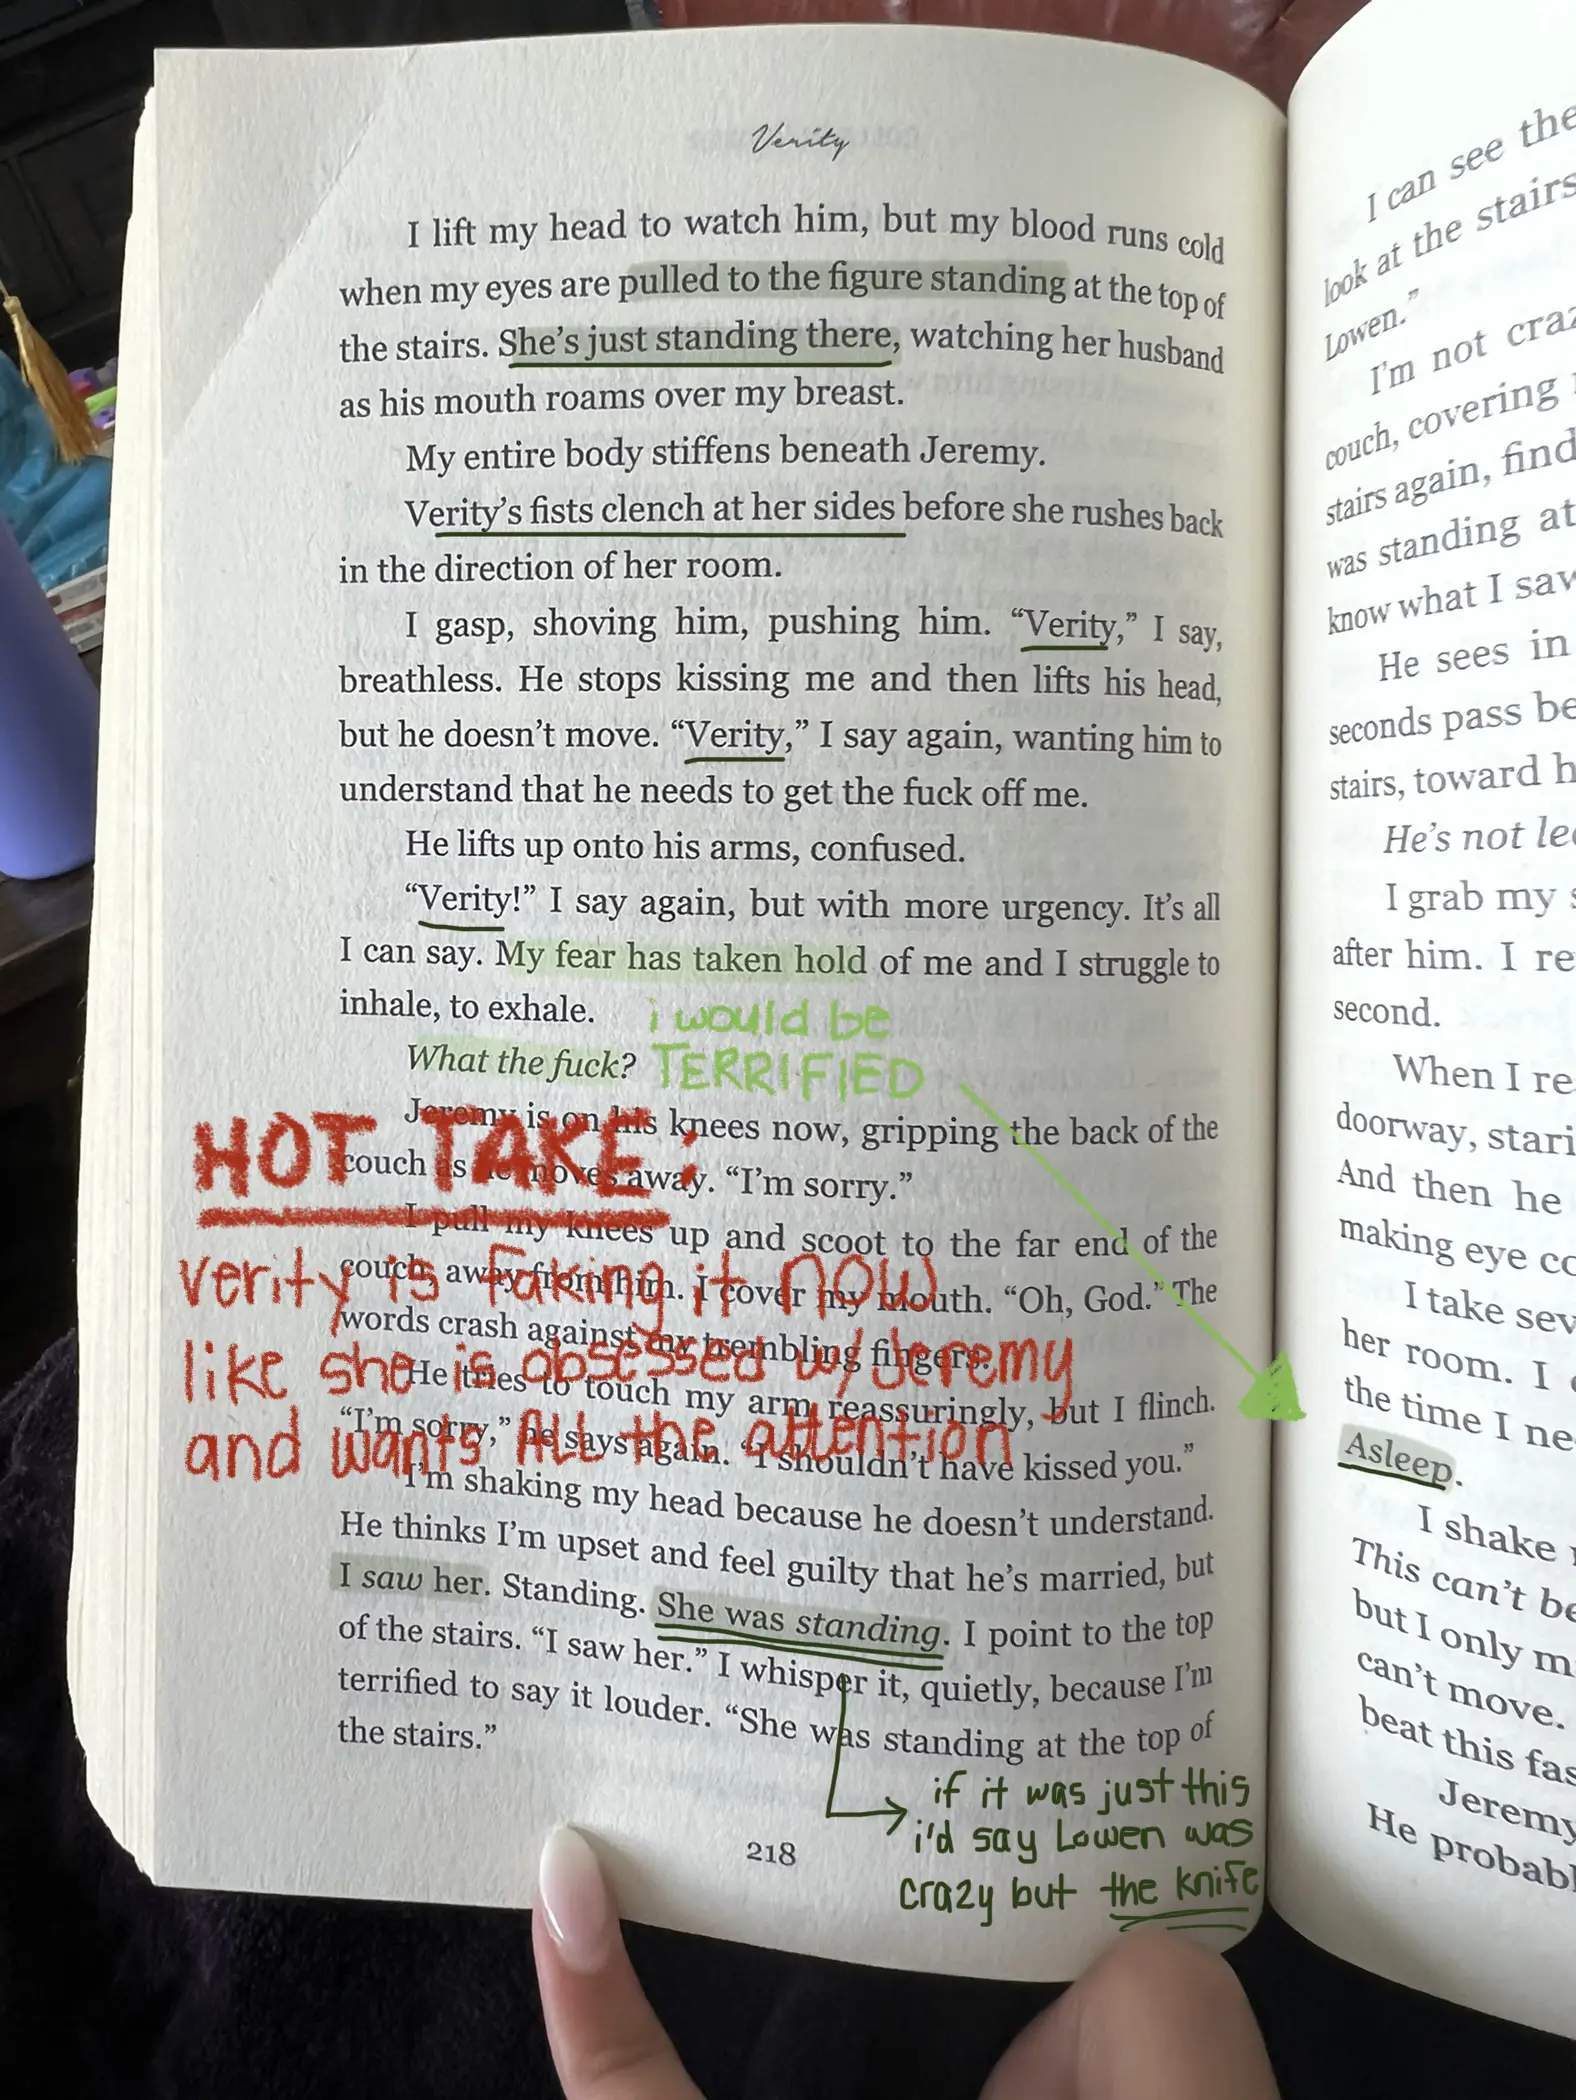 Verity
I lift my head to watch him, but my blood runs cold
when my eyes are pulled to the figure standing at the top of
the stairs. She's just standing there, watching her husband
as his mouth roams over my breast.
My entire body stiffens beneath Jeremy.
Verity's fists clench at her sides before she rushes back
in the direction of her room.
I gasp, shoving him, pushing him. “Verity,” I say,
breathless. He stops kissing me and then lifts his head,
but he doesn't move. “Verity,” I say again, wanting him to
understand that he needs to get the fuck off me.
He lifts up onto his arms, confused.
“Verity!” I say again, but with more urgency. It's all
I can say. My fear has taken hold of me and I struggle to
inhale, to exhale.
What the fuck?
i would be
TERRIFIED
Jeremy is on his knees now, gripping the back of the
couch as he moves away. “I'm sorry.”
I pull my knees up and scoot to the far end of the
couch, away from him. I cover my mouth. “Oh, God.” The
words crash against my trembling fingers.
He tries to touch my arm reassuringly, but I flinch.
“I'm sorry,” he says again. “I shouldn't have kissed you.”
I'm shaking my head because he doesn't understand.
He thinks I'm upset and feel guilty that he's married, but
I saw her. Standing. She was standing. I point to the top
of the stairs. “I saw her.” I whisper it, quietly, because I'm
terrified to say it louder. “She was standing at the top of
the stairs.”
HOT TAKE:
verity is faking it now
like she is obsessed w/ Jeremy
and wants All the attention
if it was just this
i'd say Lowen was
crazy but the knife
218
I can see the
look at the stairs
Lowen.”
I'm not craz
couch, covering
stairs again, find
was standing at
know what I saw
He sees in
seconds pass be
stairs, toward h
He's not le
I grab my s
after him. I re
second.
When I re
doorway, stari
And then he
making eye co
I take sev
her room. I
the time I ne
Asleep.
I shake
This can't be
but I only m
can't move.
beat this fas
Jeremy
He probabl